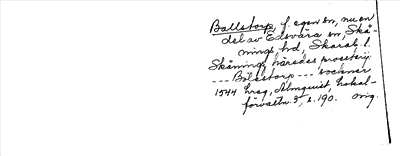 Ballstorp, f. egen sn, nu en
del av Edsvära sn, Skå-
nings hd, Skarab. l.
Skånings härads prosteri:
--- Bolstorp --- sochner
1544 hrag, Almquist, Lokal-
förvaltn. 3, s. 190. orig.